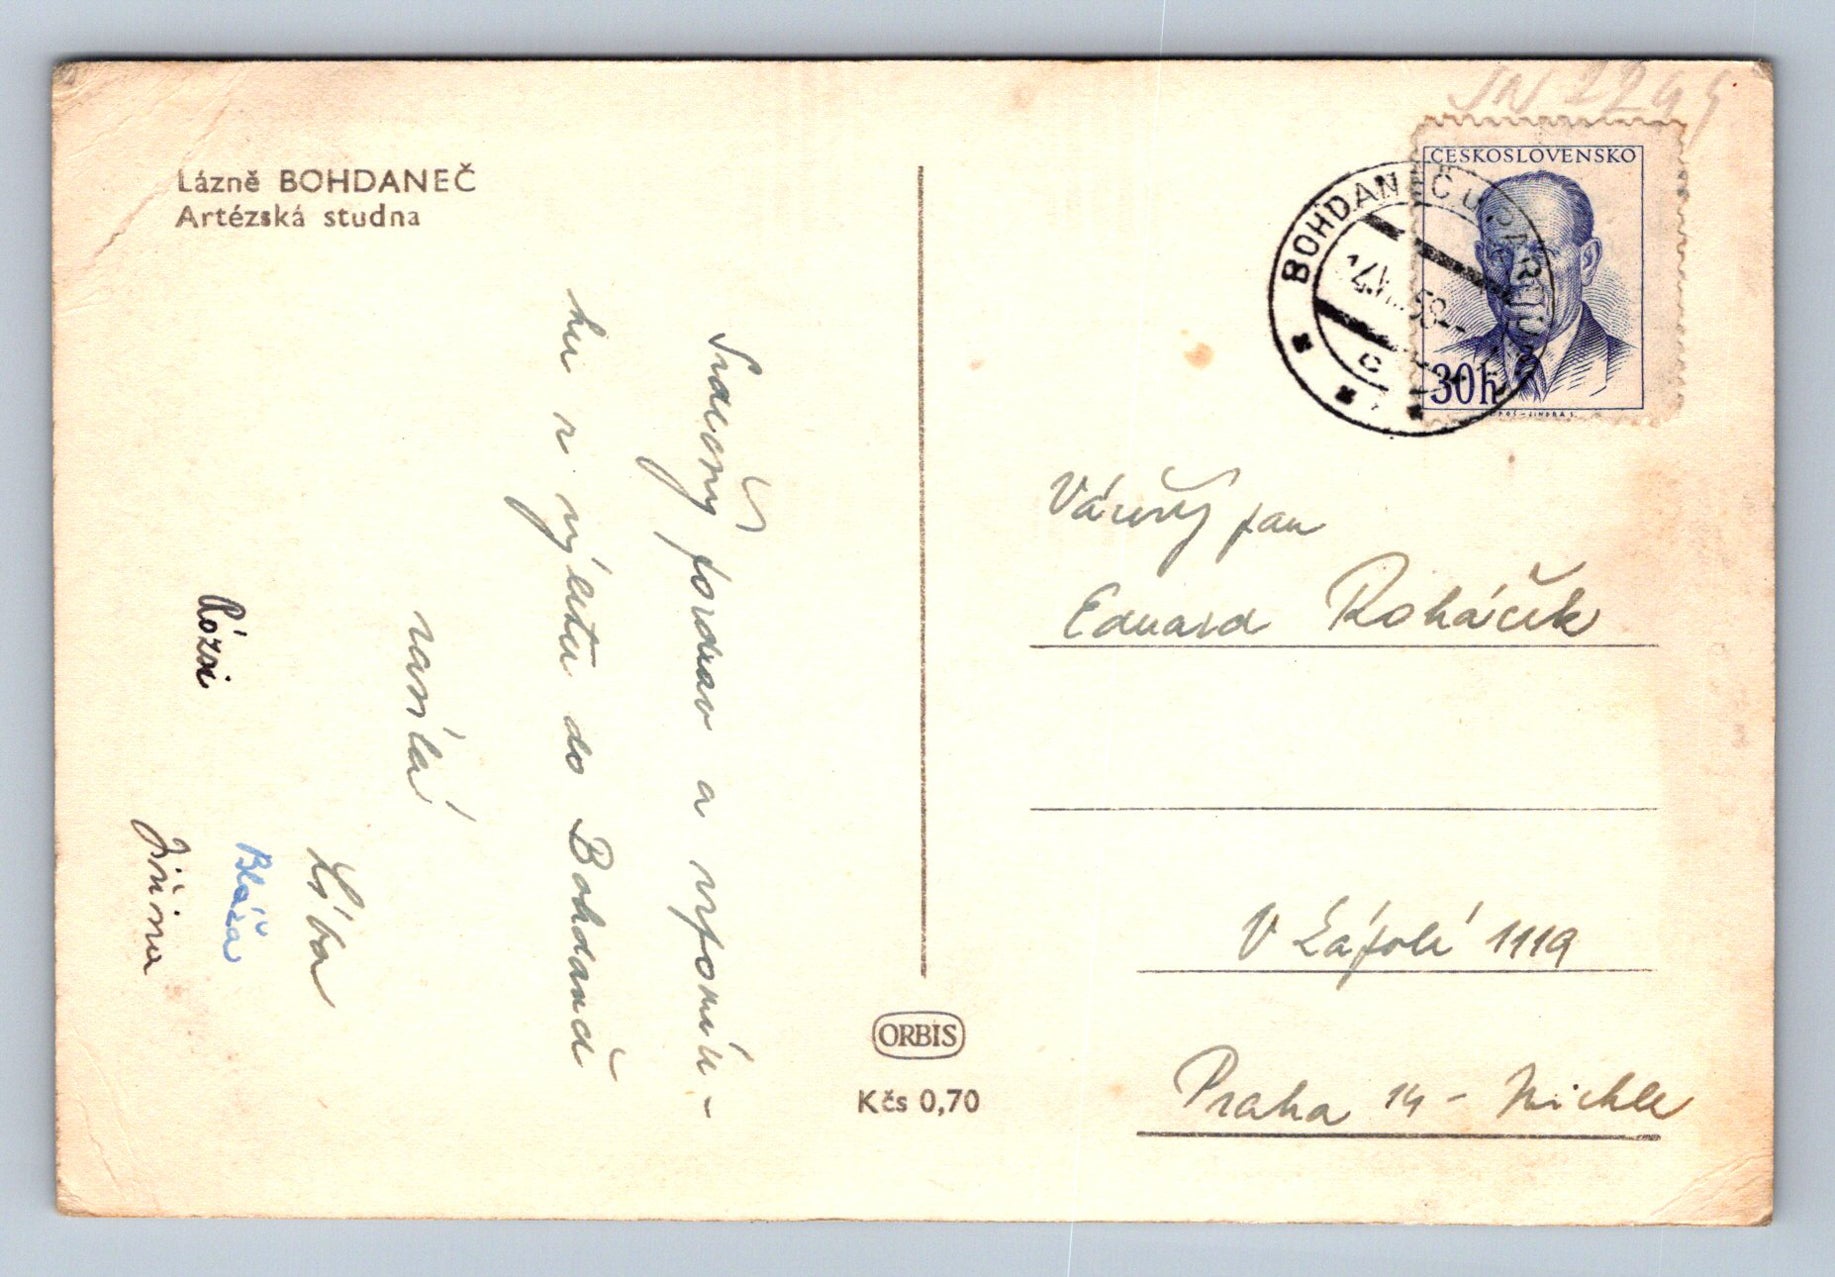 Lázně BOHDANEČ
Artézská studna
Srdečný pozdrav a vzpomín-
ku z výletu do Bohdanče
zasílá
Líba
Blaža
Rózsi
Jiřina
ORBIS
Kčs 0,70
ČESKOSLOVENSKO
30h
BOHDANEČ u PARDUBIC
Vážený pan
Eduard Roháček
V Zápolí 1119
Praha 14 - Michle